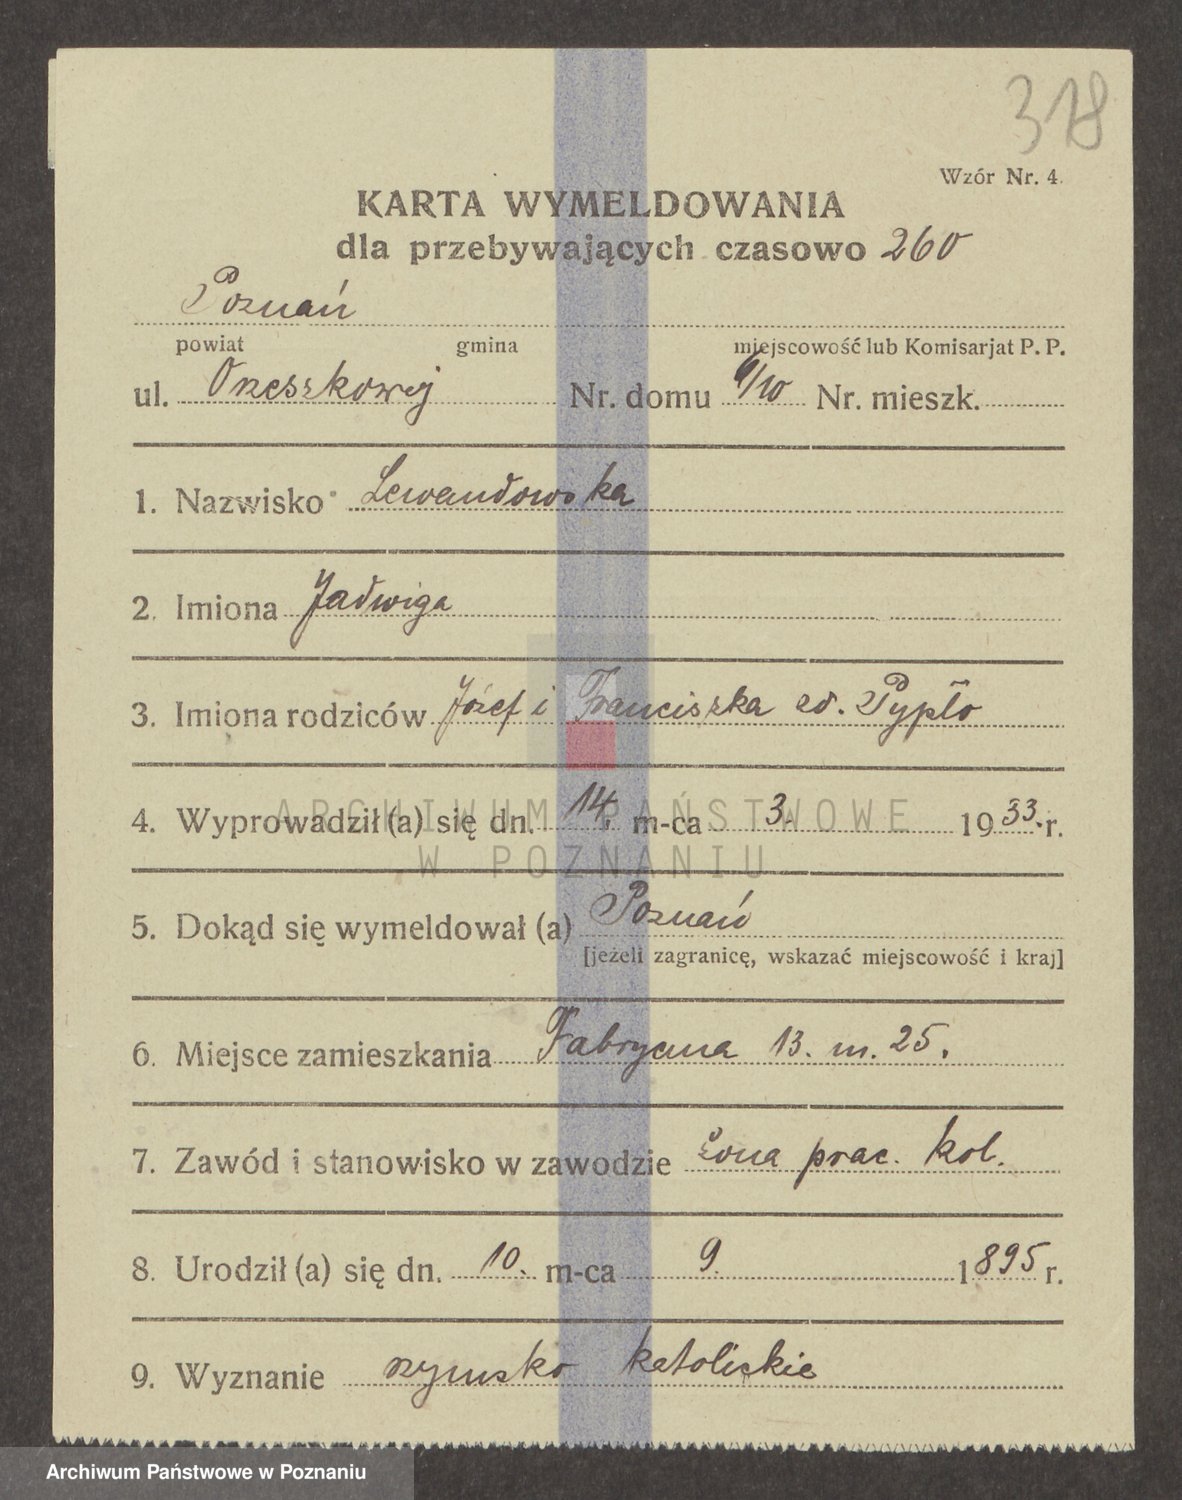 318
Wzór Nr. 4.
KARTA WYMELDOWANIA
dla przebywających czasowo 260
Poznań
powiat gmina miejscowość lub Komisarjat P. P.
ul. Orzeszkowej Nr. domu 9/10 Nr. mieszk.
1. Nazwisko Lewandowska
2. Imiona Jadwiga
3. Imiona rodziców Józef i Franciszka zd. Pypło
4. Wyprowadził (a) się dn. 14. m-ca 3. 1933. r.
ARCHIWUM PAŃSTWOWE
W POZNANIU
5. Dokąd się wymeldował (a) Poznań
[jeżeli zagranicę, wskazać miejscowość i kraj]
6. Miejsce zamieszkania Fabryczna 13. m. 25.
7. Zawód i stanowisko w zawodzie żona prac. kol.
8. Urodził (a) się dn. 10. m-ca 9. 1895 r.
9. Wyznanie rzymsko katolickie
Archiwum Państwowe w Poznaniu